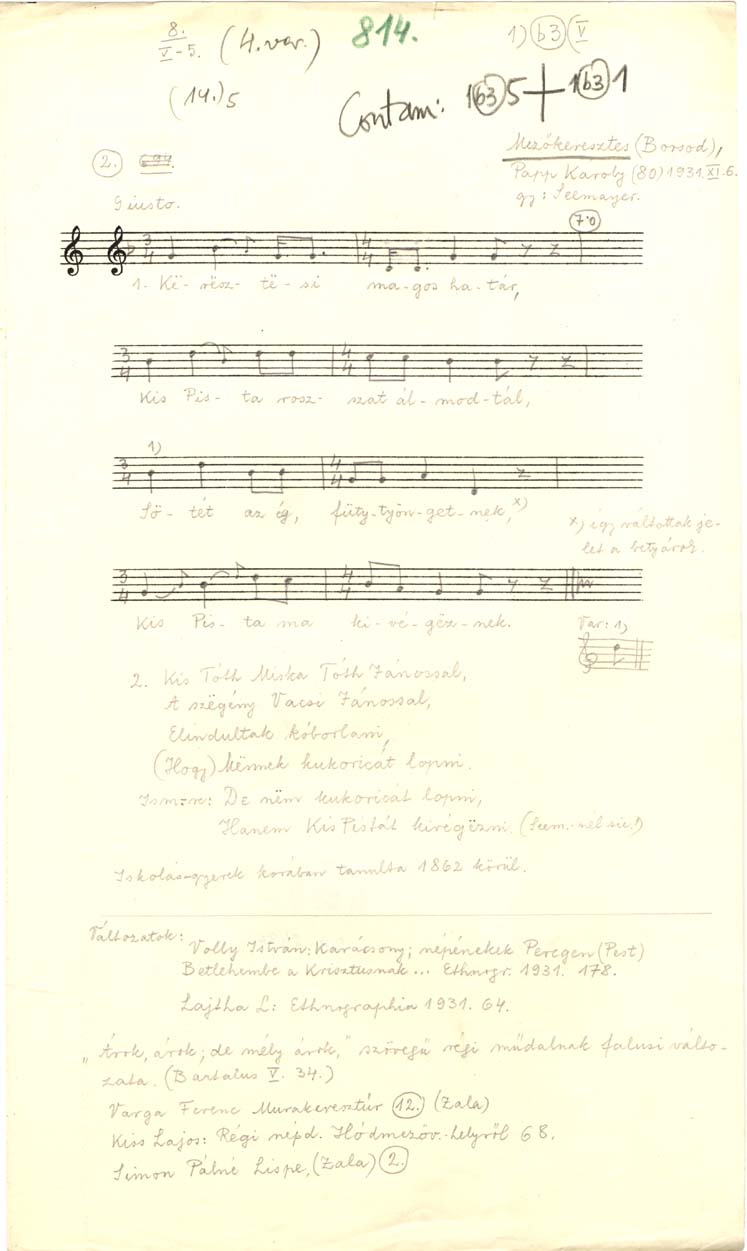 8. (4. var.) 814. 1) b3 (V
V-5.
(14.)5 Contam: 1(b3)5 + 1(b3)1
Mezőkeresztes (Borsod),
2. Papp Károly (80) 1931. XI. 6.
gy: Seemayer.
Giusto.
7·0
3/4 4/4
1. Kë-rësz-të-si ma-gos ha-tár,
3/4 4/4
Kis Pis-ta rosz-szat ál-mod-tál,
1)
3/4 4/4
Sö-tét az ég, füty-työn-get-nek, x)
x) így váltottak je-
let a betyárok.
3/4 4/4
Kis Pis-ta ma ki-vé-gëz-nek.
Var: 1)
2. Kis Tóth Miska Tóth Jánossal,
A szëgény Vacsi Jánossal,
Elindultak kóborlani,
(Hogy) Mënnek kukoricát lopni.
Ism-re: De nëm kukoricát lopni,
Hanem Kis Pistát kivégëzni. (Seem.-nél sic!)
Iskolás-gyerek korában tanulta 1862 körül.
Változatok:
Volly István: Karácsony; népénekek Peregen (Pest)
Betlehembe a Krisztusnak... Ethnogr. 1931. 178.
Lajtha L: Ethnographia 1931. 64.
„Árok, árok; de mély árok," szövegű régi műdalnak falusi válto-
zata. (Bartalus V. 34.)
Varga Ferenc Murakeresztúr 12. (Zala)
Kiss Lajos: Régi népd. Hódmezőv.-helyről 68.
Simon Pálné Lispe, (Zala) 2.